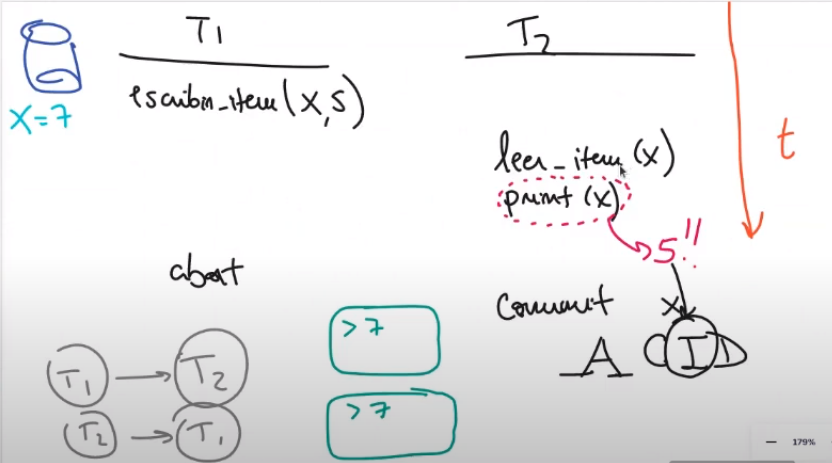 T1
T2
escribir_item(X,5)
X=7
leer_item(X)
print(X)
t
5!!
abort
Commit
X
ACID
>7
T1 → T2
>7
T2 → T1
179%